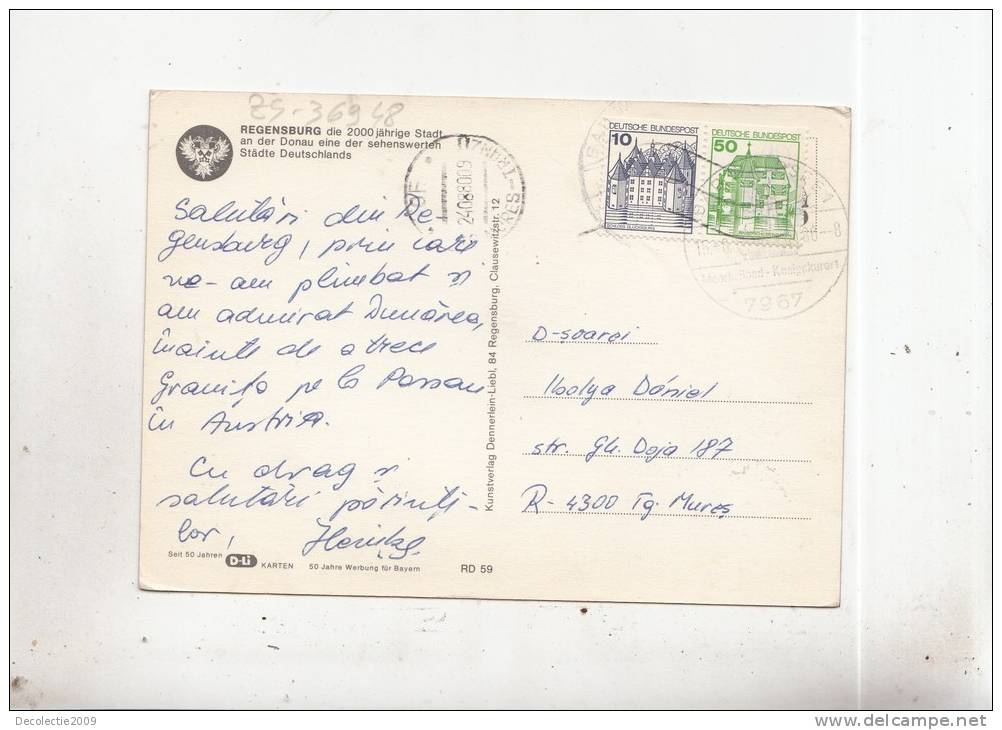 ZS-36948
REGENSBURG die 2000jährige Stadt
an der Donau eine der sehenswerten
Städte Deutschlands
Salutări din Re
gensburg, prin care
ne-am plimbat și
am admirat Dunărea,
înainte de a trece
Granița pe la Passau
în Austria.
Cu drag și
salutări părinți-
lor,
Seit 50 Jahren D-Li KARTEN 50 Jahre Werbung für Bayern RD 59
Kunstverlag Dennerlein-Liebl, 84 Regensburg, Clausewitzstr. 12
DEUTSCHE BUNDESPOST
10
SCHLOSS GLÜCKSBURG
DEUTSCHE BUNDESPOST
50
7967
D-șoarei
Ibolya Dániel
str. Gh. Doja 187
R-4300 Tg. Mureș
Decolectie2009
www.delcampe.net